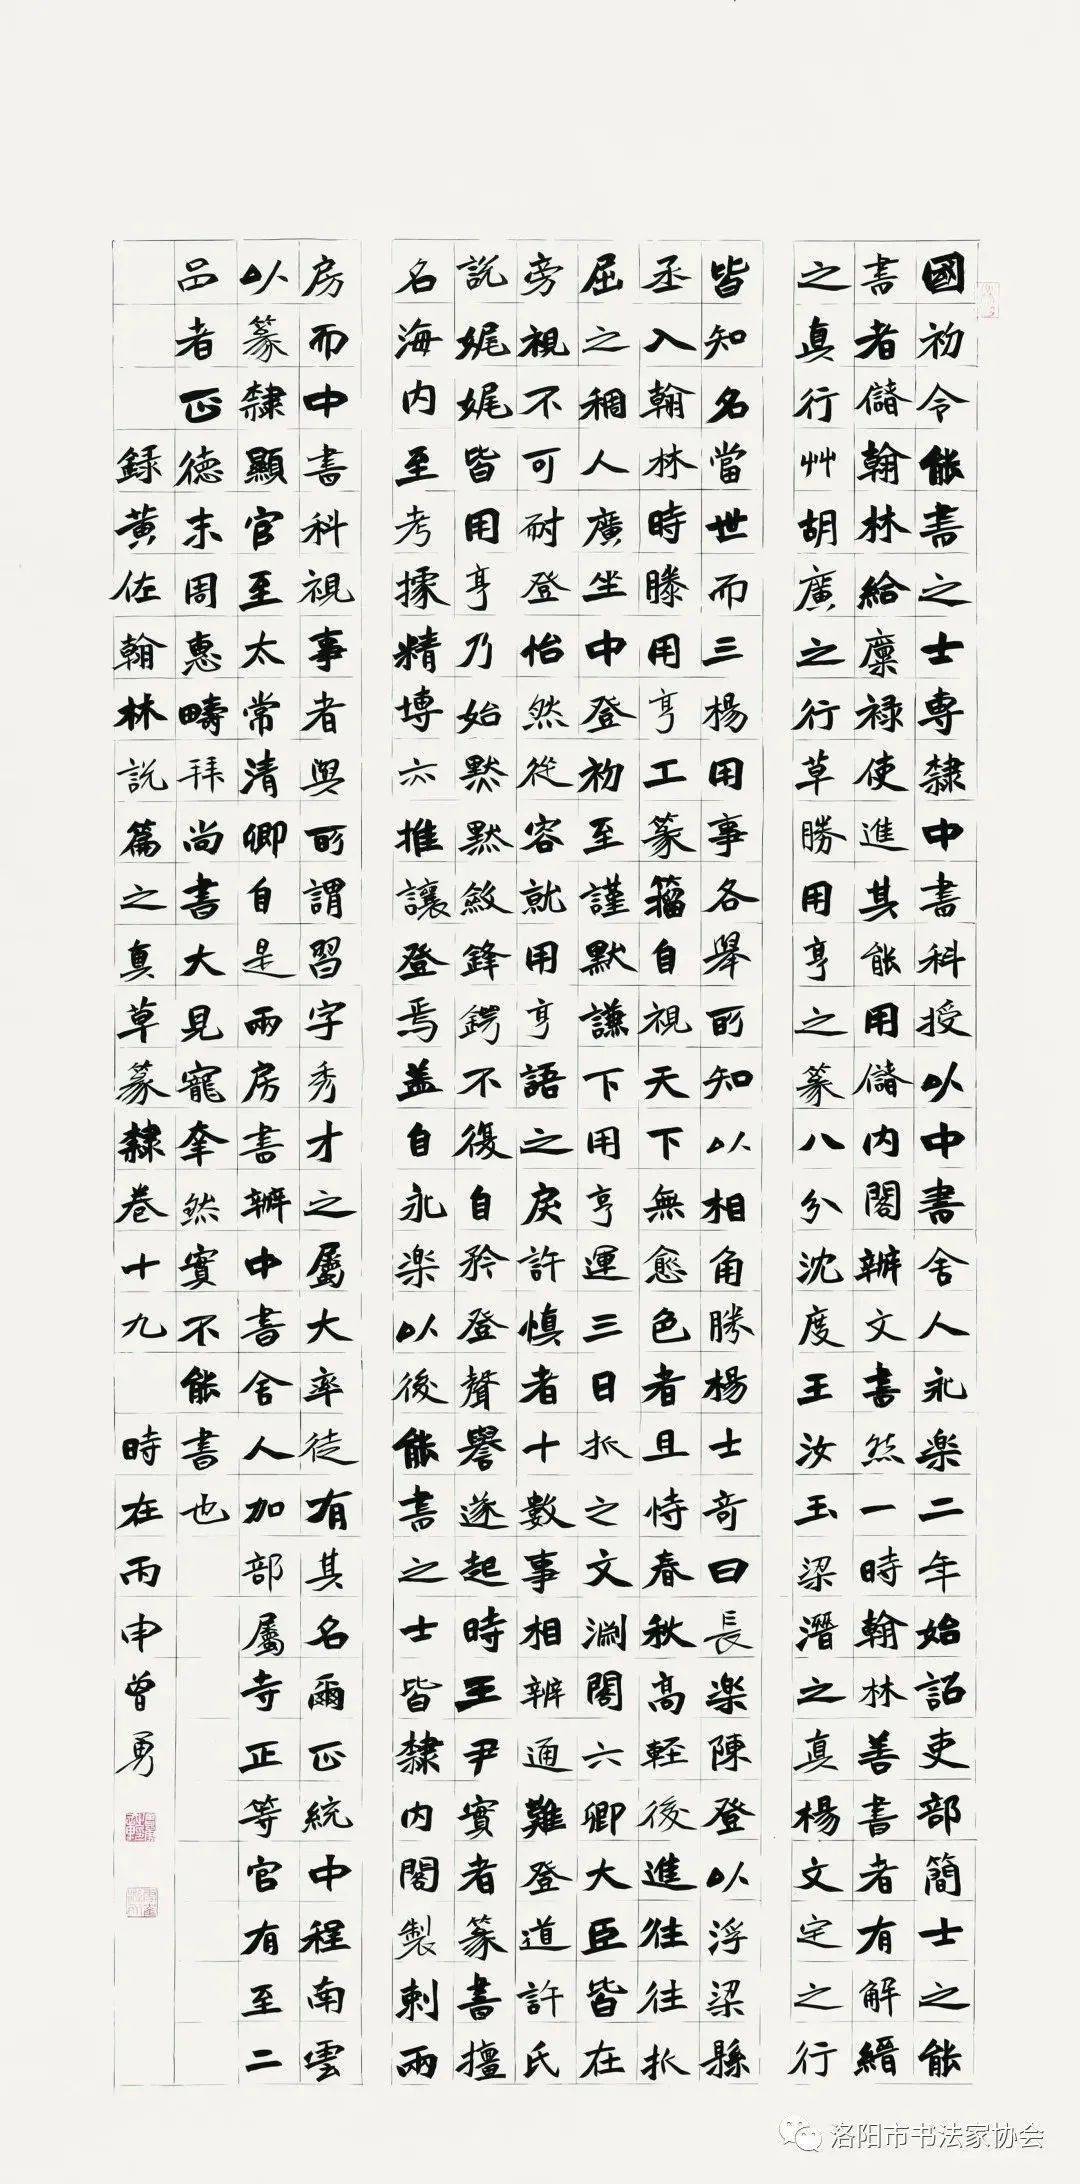 國初令能書之士專隸中書科授以中書舍人永樂二年始詔吏部簡士之能
書者儲翰林給廩禄使進其能用儲内閣辦文書然一時翰林善書者有解縉
之真行艸胡廣之行草勝用亨之篆八分沈度王汝玉梁潛之真楊文定之行
皆知名當世而三楊用事各舉所知以相角勝楊士奇曰長樂陳登以浮梁縣
丞入翰林時滕用亨工篆籀自視天下無愈色者且恃春秋高輕後進往往折
屈之稠人廣坐中登初至謹默謙下用亨運三日折之文淵閣六卿大臣皆在
旁視不可耐登怡然從容就用亨語之戾許慎者十數事相辨通難登道許氏
説娓娓皆用亨乃始默默斂鋒鍔不復自矜登聲譽遂起時王尹實者篆書擅
名海内至考據精博亦推讓登焉蓋自永樂以後能書之士皆隸内閣製剌兩
房而中書科視事者與所謂習字秀才之屬大率徒有其名爾正統中程南雲
以篆隸顯官至太常清卿自是兩房書辦中書舍人加部屬寺正等官有至二
品者正德末周惠疇拜尚書大見寵幸然實不能書也
録黄佐翰林説篇之真草篆隸卷十九 時在丙申曾勇
洛阳市书法家协会